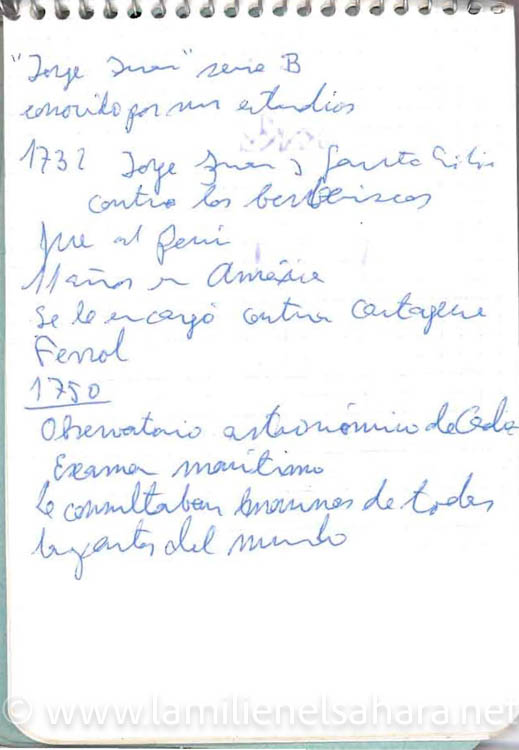 "Jorge Juan" serie B
conocido por sus estudios
1732 Jorge Juan y
contra los berberiscos
fue al Perú
11 años en América
se le encargó contra Cartagena
Ferrol
1750
Observatorio astronómico de Cádiz
Examen marítimo
le consultaban marinos de todas
las partes del mundo
© www.lamilienelsahara.net